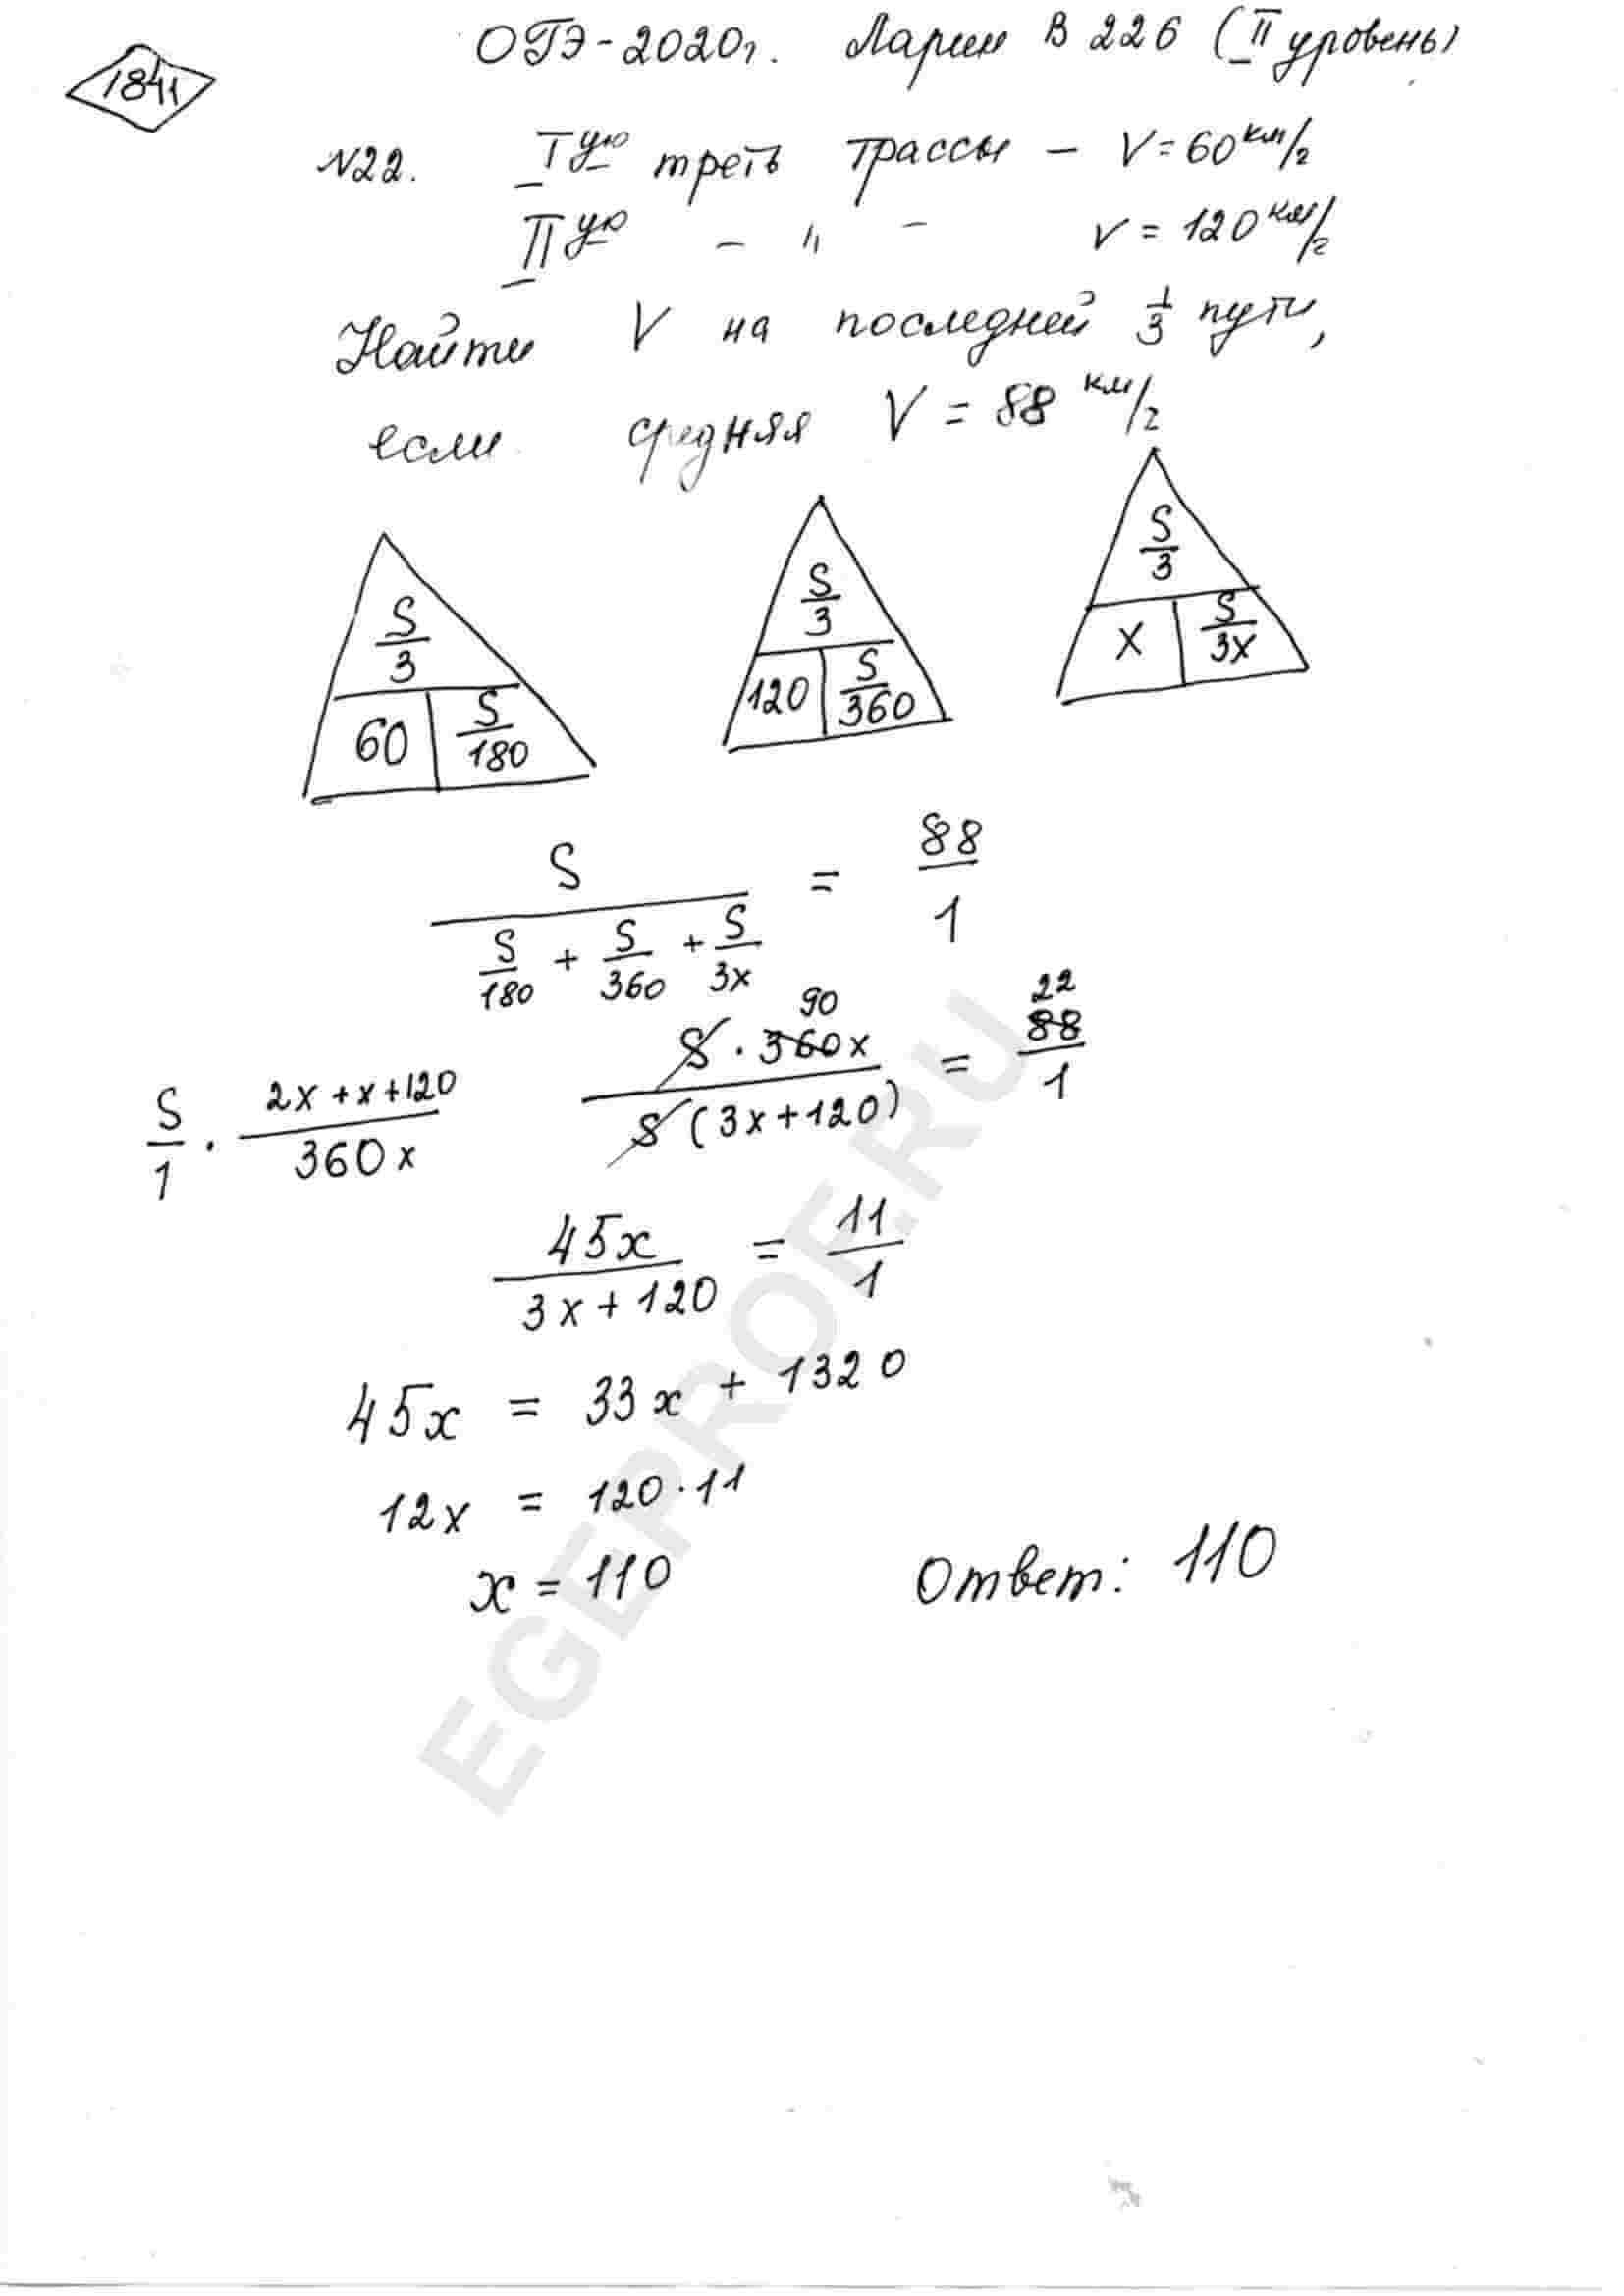 1841
ОГЭ-2020г. Ларин В 226 (II уровень)
№22. I ую треть трассы – V = 60 км/г
II ую – " – V = 120 км/г
Найти V на последней 1/3 пути,
если средняя V = 88 км/г
S/3 60 S/180
S/3 120 S/360
S/3 x S/3x
S/(S/180 + S/360 + S/3x) = 88/1
S/1 · (2x + x + 120)/360x
90 22
S · 360x/S(3x + 120) = 88/1
45x/(3x + 120) = 11/1
45x = 33x + 1320
12x = 120 · 11
x = 110 Ответ: 110
EGEPROF.RU